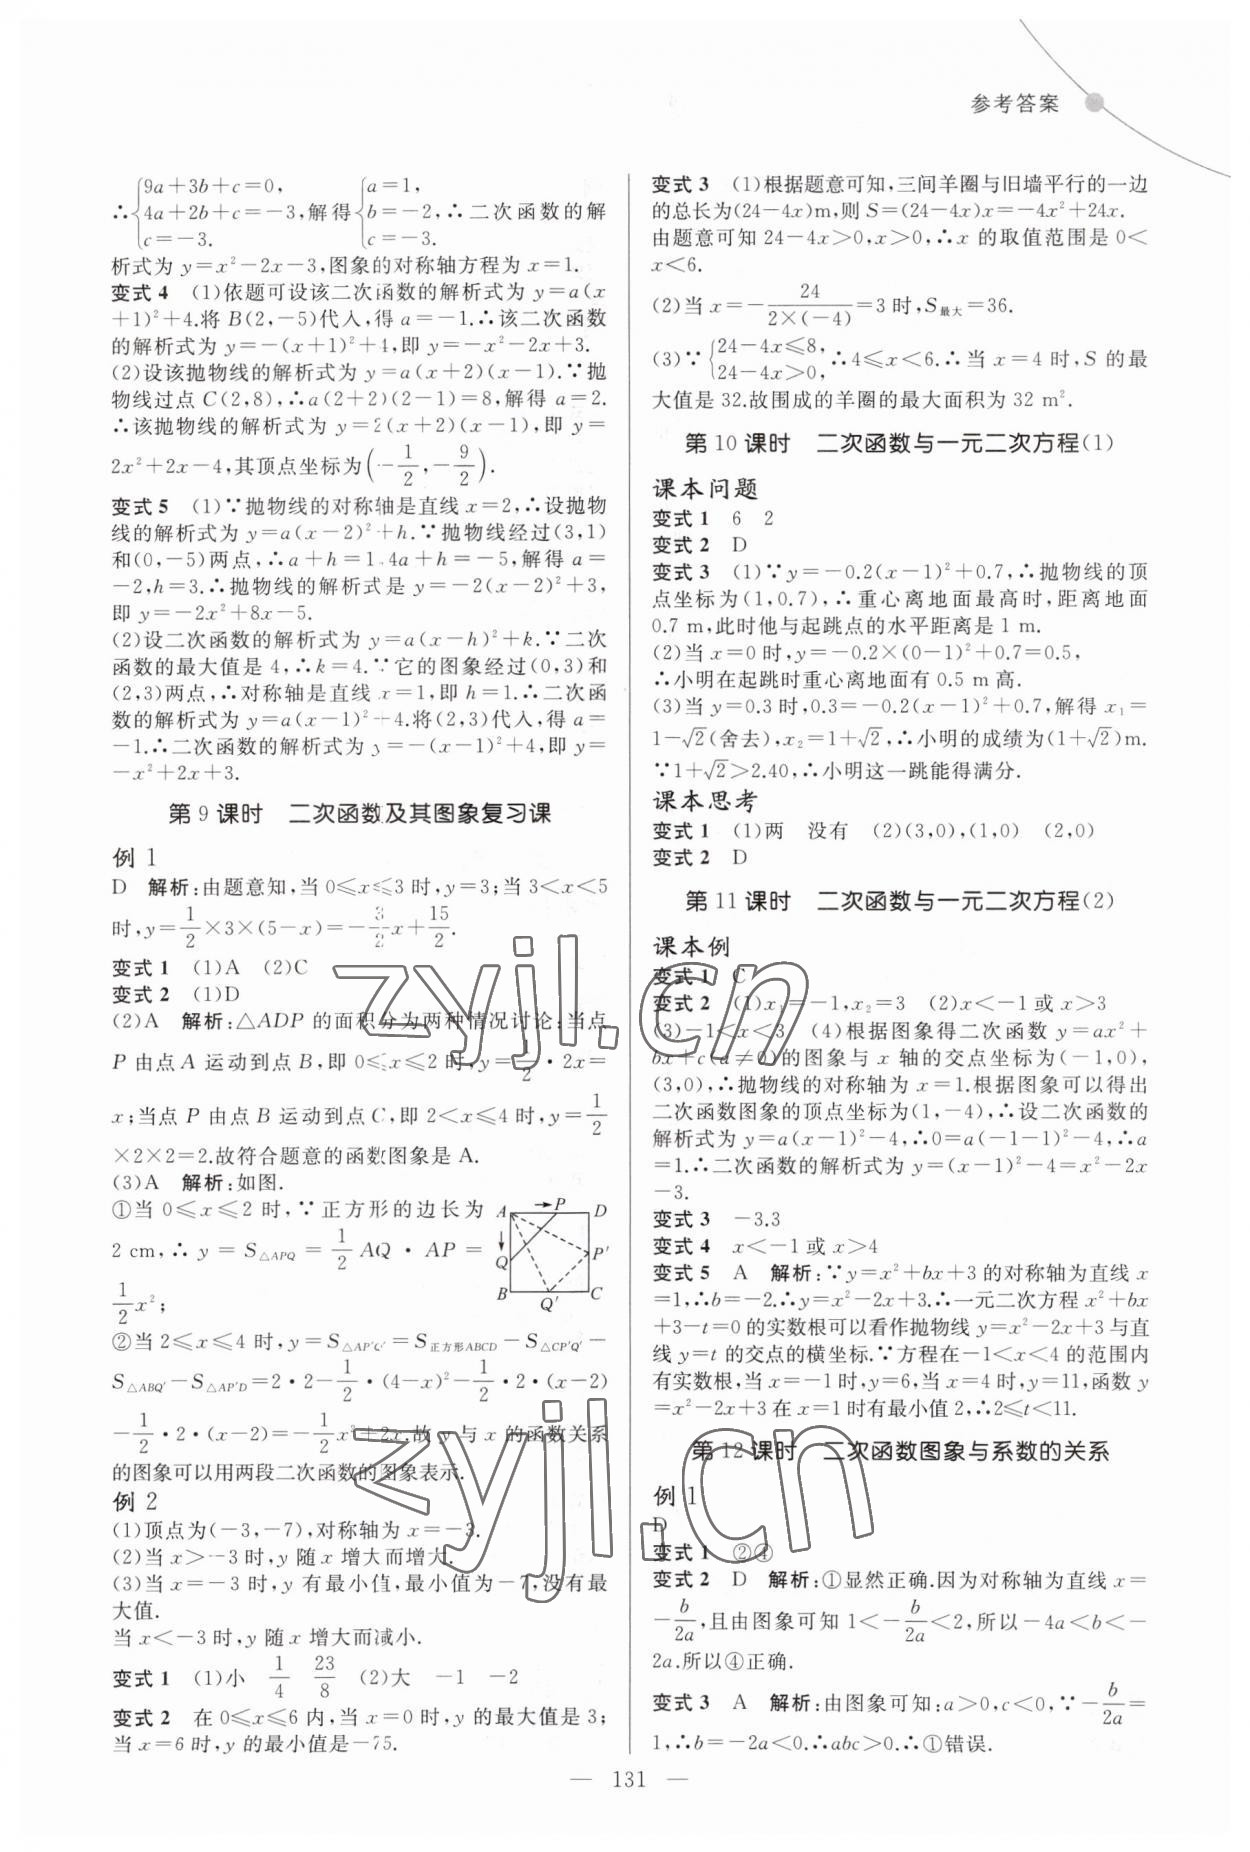 参考答案
∴{9a+3b+c=0, 4a+2b+c=-3, c=-3. 解得{a=1, b=-2, c=-3. ∴二次函数的解
析式为 y=x²-2x-3,图象的对称轴方程为 x=1.
变式 4 (1)依题可设该二次函数的解析式为 y=a(x
+1)²+4.将 B(2,-5)代入,得 a=-1.∴该二次函数
的解析式为 y=-(x+1)²+4,即 y=-x²-2x+3.
(2)设该抛物线的解析式为 y=a(x+2)(x-1).∵抛
物线过点 C(2,8),∴a(2+2)(2-1)=8,解得 a=2.
∴该抛物线的解析式为 y=2(x+2)(x-1),即 y=
2x²+2x-4,其顶点坐标为(-1/2,-9/2).
变式 5 (1)∵抛物线的对称轴是直线 x=2,∴设抛物
线的解析式为 y=a(x-2)²+h.∵抛物线经过(3,1)
和(0,-5)两点,∴a+h=1,4a+h=-5,解得 a=
-2,h=3.∴抛物线的解析式是 y=-2(x-2)²+3,
即 y=-2x²+8x-5.
(2)设二次函数的解析式为 y=a(x-h)²+k.∵二次
函数的最大值是 4,∴k=4.∵它的图象经过(0,3)和
(2,3)两点,∴对称轴是直线 x=1,即 h=1.∴二次函
数的解析式为 y=a(x-1)²+4.将(2,3)代入,得 a=
-1.∴二次函数的解析式为 y=-(x-1)²+4,即 y=
-x²+2x+3.
第 9 课时 二次函数及其图象复习课
例 1
D 解析:由题意知,当 0≤x≤3 时,y=3;当 3<x<5
时,y=1/2×3×(5-x)=-3/2x+15/2.
变式 1 (1)A (2)C
变式 2 (1)D
(2)A 解析:△ADP 的面积分为两种情况讨论:当点
P 由点 A 运动到点 B,即 0≤x≤2 时,y=1/2·2x=
x;当点 P 由点 B 运动到点 C,即 2<x≤4 时,y=1/2
×2×2=2.故符合题意的函数图象是 A.
(3)A 解析:如图.
①当 0≤x≤2 时,∵正方形的边长为
2 cm,∴y=S△APQ=1/2 AQ·AP=
1/2x²;
A P D
Q P′
B Q′ C
②当 2≤x≤4 时,y=S△AP′Q′=S正方形ABCD-S△CP′Q′-
S△ABQ′-S△AP′D=2·2-1/2·(4-x)²-1/2·2·(x-2)
-1/2·2·(x-2)=-1/2x²+2x,故 y 与 x 的函数关系
的图象可以用两段二次函数的图象表示.
例 2
(1)顶点为(-3,-7),对称轴为 x=-3.
(2)当 x>-3 时,y 随 x 增大而增大.
(3)当 x=-3 时,y 有最小值,最小值为-7,没有最
大值.
当 x<-3 时,y 随 x 增大而减小.
变式 1 (1)小 1/4 23/8 (2)大 -1 -2
变式 2 在 0≤x≤6 内,当 x=0 时,y 的最大值是 3;
当 x=6 时,y 的最小值是-75.
变式 3 (1)根据题意可知,三间羊圈与旧墙平行的一边
的总长为(24-4x)m,则 S=(24-4x)x=-4x²+24x.
由题意可知 24-4x>0,x>0,∴x 的取值范围是 0<
x<6.
(2)当 x=-24/(2×(-4))=3 时,S最大=36.
(3)∵{24-4x≤8, 24-4x>0, ∴4≤x<6.∴当 x=4 时,S 的最
大值是 32.故围成的羊圈的最大面积为 32 m².
第 10 课时 二次函数与一元二次方程(1)
课本问题
变式 1 6 2
变式 2 D
变式 3 (1)∵y=-0.2(x-1)²+0.7,∴抛物线的顶
点坐标为(1,0.7),∴重心离地面最高时,距离地面
0.7 m,此时他与起跳点的水平距离是 1 m.
(2)当 x=0 时,y=-0.2×(0-1)²+0.7=0.5,
∴小明在起跳时重心离地面有 0.5 m 高.
(3)当 y=0.3 时,0.3=-0.2(x-1)²+0.7,解得 x₁=
1-√2(舍去),x₂=1+√2,∴小明的成绩为(1+√2)m.
∵1+√2>2.40,∴小明这一跳能得满分.
课本思考
变式 1 (1)两 没有 (2)(3,0),(1,0) (2,0)
变式 2 D
第 11 课时 二次函数与一元二次方程(2)
课本例
变式 1 C
变式 2 (1)x₁=-1,x₂=3 (2)x<-1 或 x>3
(3)-1<x<3 (4)根据图象得二次函数 y=ax²+
bx+c(a≠0)的图象与 x 轴的交点坐标为(-1,0),
(3,0),∴抛物线的对称轴为 x=1.根据图象可以得出
二次函数图象的顶点坐标为(1,-4),∴设二次函数的
解析式为 y=a(x-1)²-4,∴0=a(-1-1)²-4,∴a
=1.∴二次函数的解析式为 y=(x-1)²-4=x²-2x
-3.
变式 3 -3.3
变式 4 x<-1 或 x>4
变式 5 A 解析:∵y=x²+bx+3 的对称轴为直线 x
=1,∴b=-2.∴y=x²-2x+3.∴一元二次方程 x²+bx
+3-t=0 的实数根可以看作抛物线 y=x²-2x+3 与直
线 y=t 的交点的横坐标.∵方程在-1<x<4 的范围内
有实数根,当 x=-1 时,y=6,当 x=4 时,y=11,函数 y
=x²-2x+3 在 x=1 时有最小值 2,∴2≤t<11.
第 12 课时 二次函数图象与系数的关系
例 1
D
变式 1 ②④
变式 2 D 解析:①显然正确.因为对称轴为直线 x=
-b/2a,且由图象可知 1<-b/2a<2,所以-4a<b<-
2a.所以④正确.
变式 3 A 解析:由图象可知:a>0,c<0,∵-b/2a=
1,∴b=-2a<0.∴abc>0.∴①错误.
— 131 —
zyjl.cn
zyjl.cn